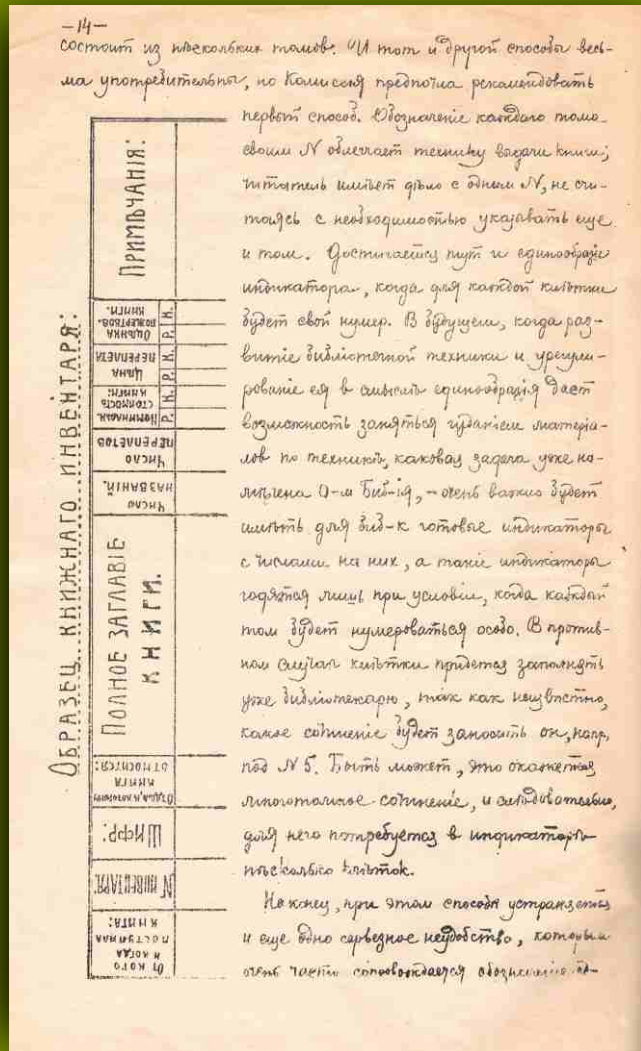 —14—
состоит из нѣскольких томов. И тот и другой способы весь-
ма употребительны, но Комиссія предпочла рекомендовать
первый способ. Обозначеніе каждаго тома
своим N облегчает технику выдачи книги;
читатель имѣет дѣло с одним N, не счи-
таясь с необходимостью указывать еще
и том. Достигается тут и единообразіе
индикатора, когда для каждой клѣтки
будет свой нумер. В будущем, когда раз-
витіе библіотечной техники и урегули-
рованіе ея в смыслѣ единообразія даст
возможность заняться изданіем матеріа-
лов по техникѣ, каковая задача уже на-
мѣчена О-м Биб-ія, – очень важно будет
имѣть для биб-к готовые индикаторы
с числами на них, а такіе индикаторы
годятся лишь при условіи, когда каждый
том будет нумероваться особо. В против-
ном случаѣ клѣтки придется заполнять
уже библіотекарю, так как неизвѣстно,
какое сочиненіе будет заносить он, напр,
под N 5. Быть может, это окажется
многотомное сочиненіе, и слѣдовательно,
для него потребуется в индикаторѣ
нѣсколько клѣток.
На конец, при этом способѣ устраняется
и еще одно серьезное неудобство, которым
очень часто сопровождается обозначеніе од-
ОБРАЗЕЦ КНИЖНАГО ИНВЕНТАРЯ:
От кого
и когда
поступила
книга:
N ИНВЕНТАРЯ:
ШИФР:
Отдѣл, к которому
книга
относится:
ПОЛНОЕ ЗАГЛАВІЕ
КНИГИ.
Число
названій.
Число
переплетов
Номинальн.
стоимость
книги:
Р. К.
Цѣна
переплета
Р. К.
Оцѣнка
пожертвов.
книги.
Р. К.
ПРИМѢЧАНІЯ: